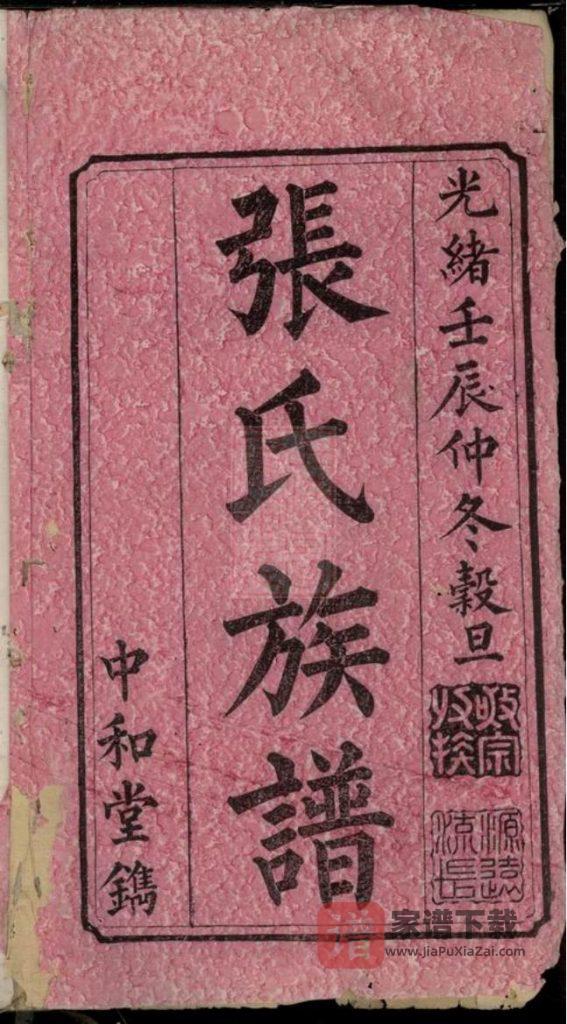 光緒壬辰仲冬穀旦
敬宗收族
源遠流長
張氏族譜
中和堂鐫
譜
家谱下载
www.JiaPuXiaZai.com